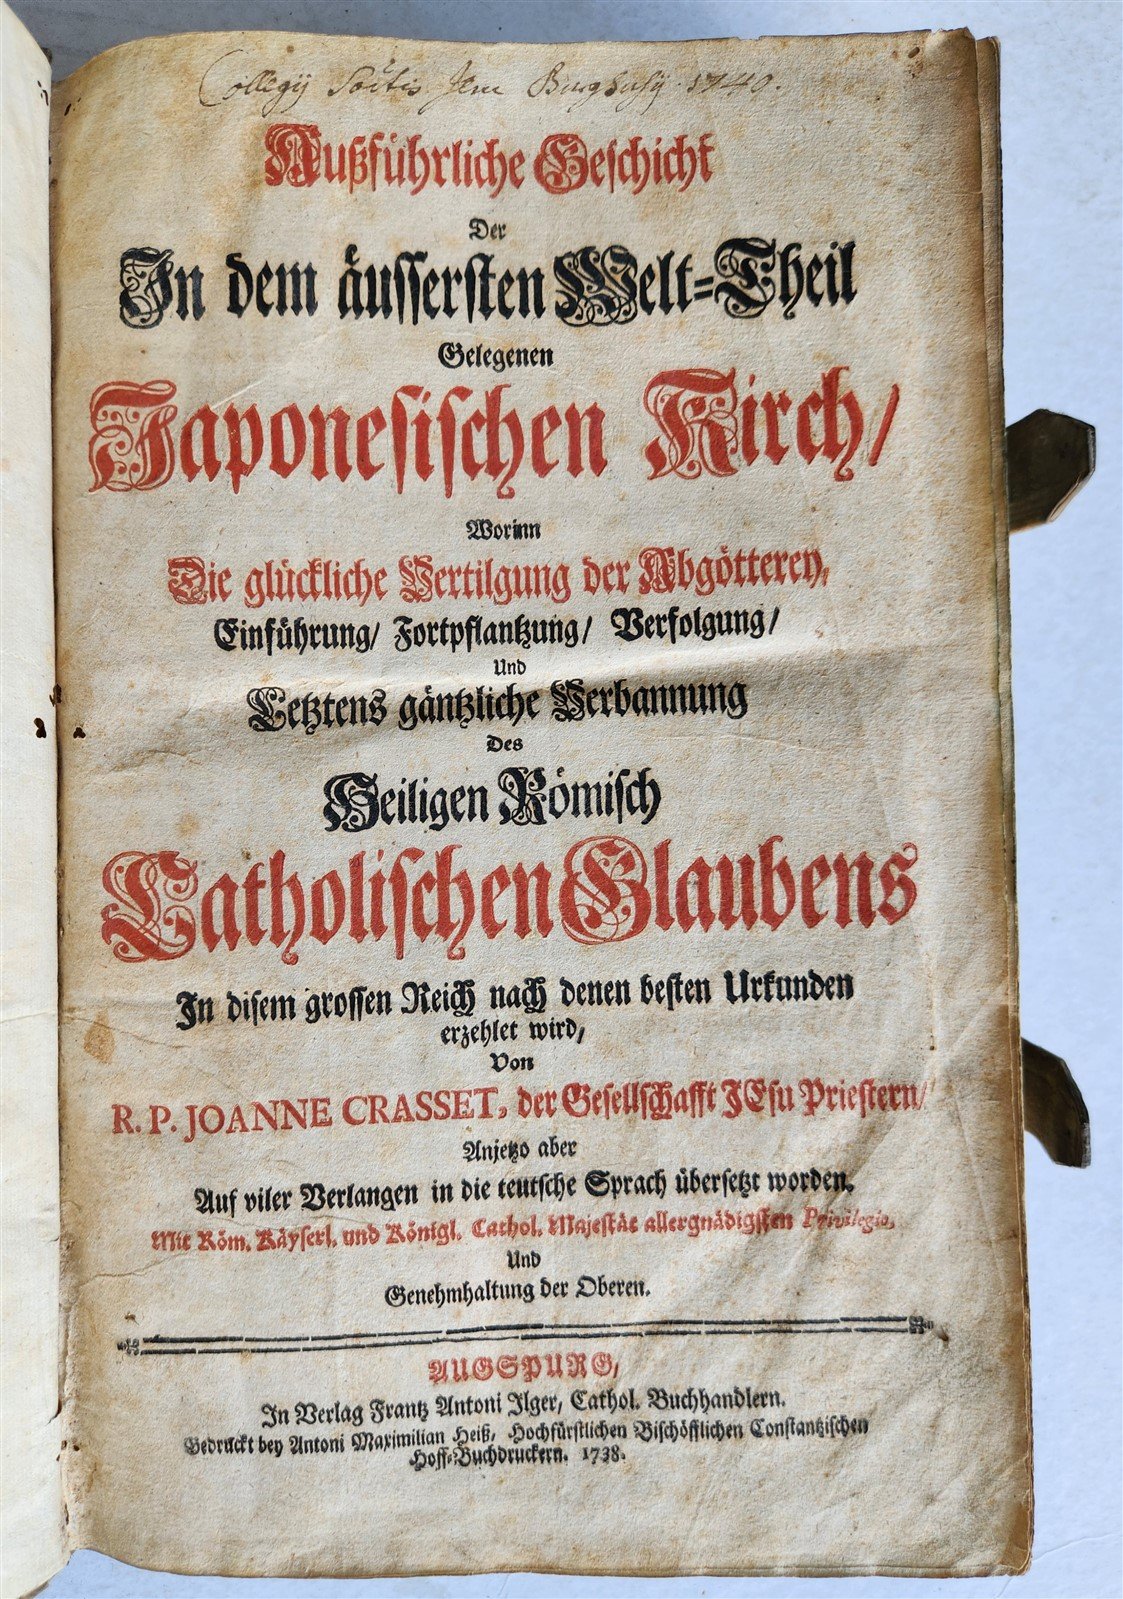 Collegij Soctis Jesu Burghusij 1740.
Außführliche Geschicht
Der
In dem äussersten Welt-Theil
Gelegenen
Japonesischen Kirch/
Worinn
Die glückliche Vertilgung der Abgötterey,
Einführung/ Fortpflantzung/ Verfolgung/
Und
Letztens gäntzliche Verbannung
Des
Heiligen Römisch
Catholischen Glaubens
In disem grossen Reich nach denen besten Urkunden
erzehlet wird,
Von
R. P. JOANNE CRASSET, der Gesellschafft JEsu Priestern/
Anjetzo aber
Auf viler Verlangen in die teutsche Sprach übersetzt worden.
Mit Röm. Käyserl. und Königl. Cathol. Majestät allergnädigsten Privilegio,
Und
Genehmhaltung der Oberen.
AUGSPURG,
In Verlag Frantz Antoni Ilger, Cathol. Buchhandlern.
Gedruckt bey Antoni Maximilian Heiß, Hochfürstlichen Bischöfflichen Constantzischen
Hoff-Buchdruckern. 1738.